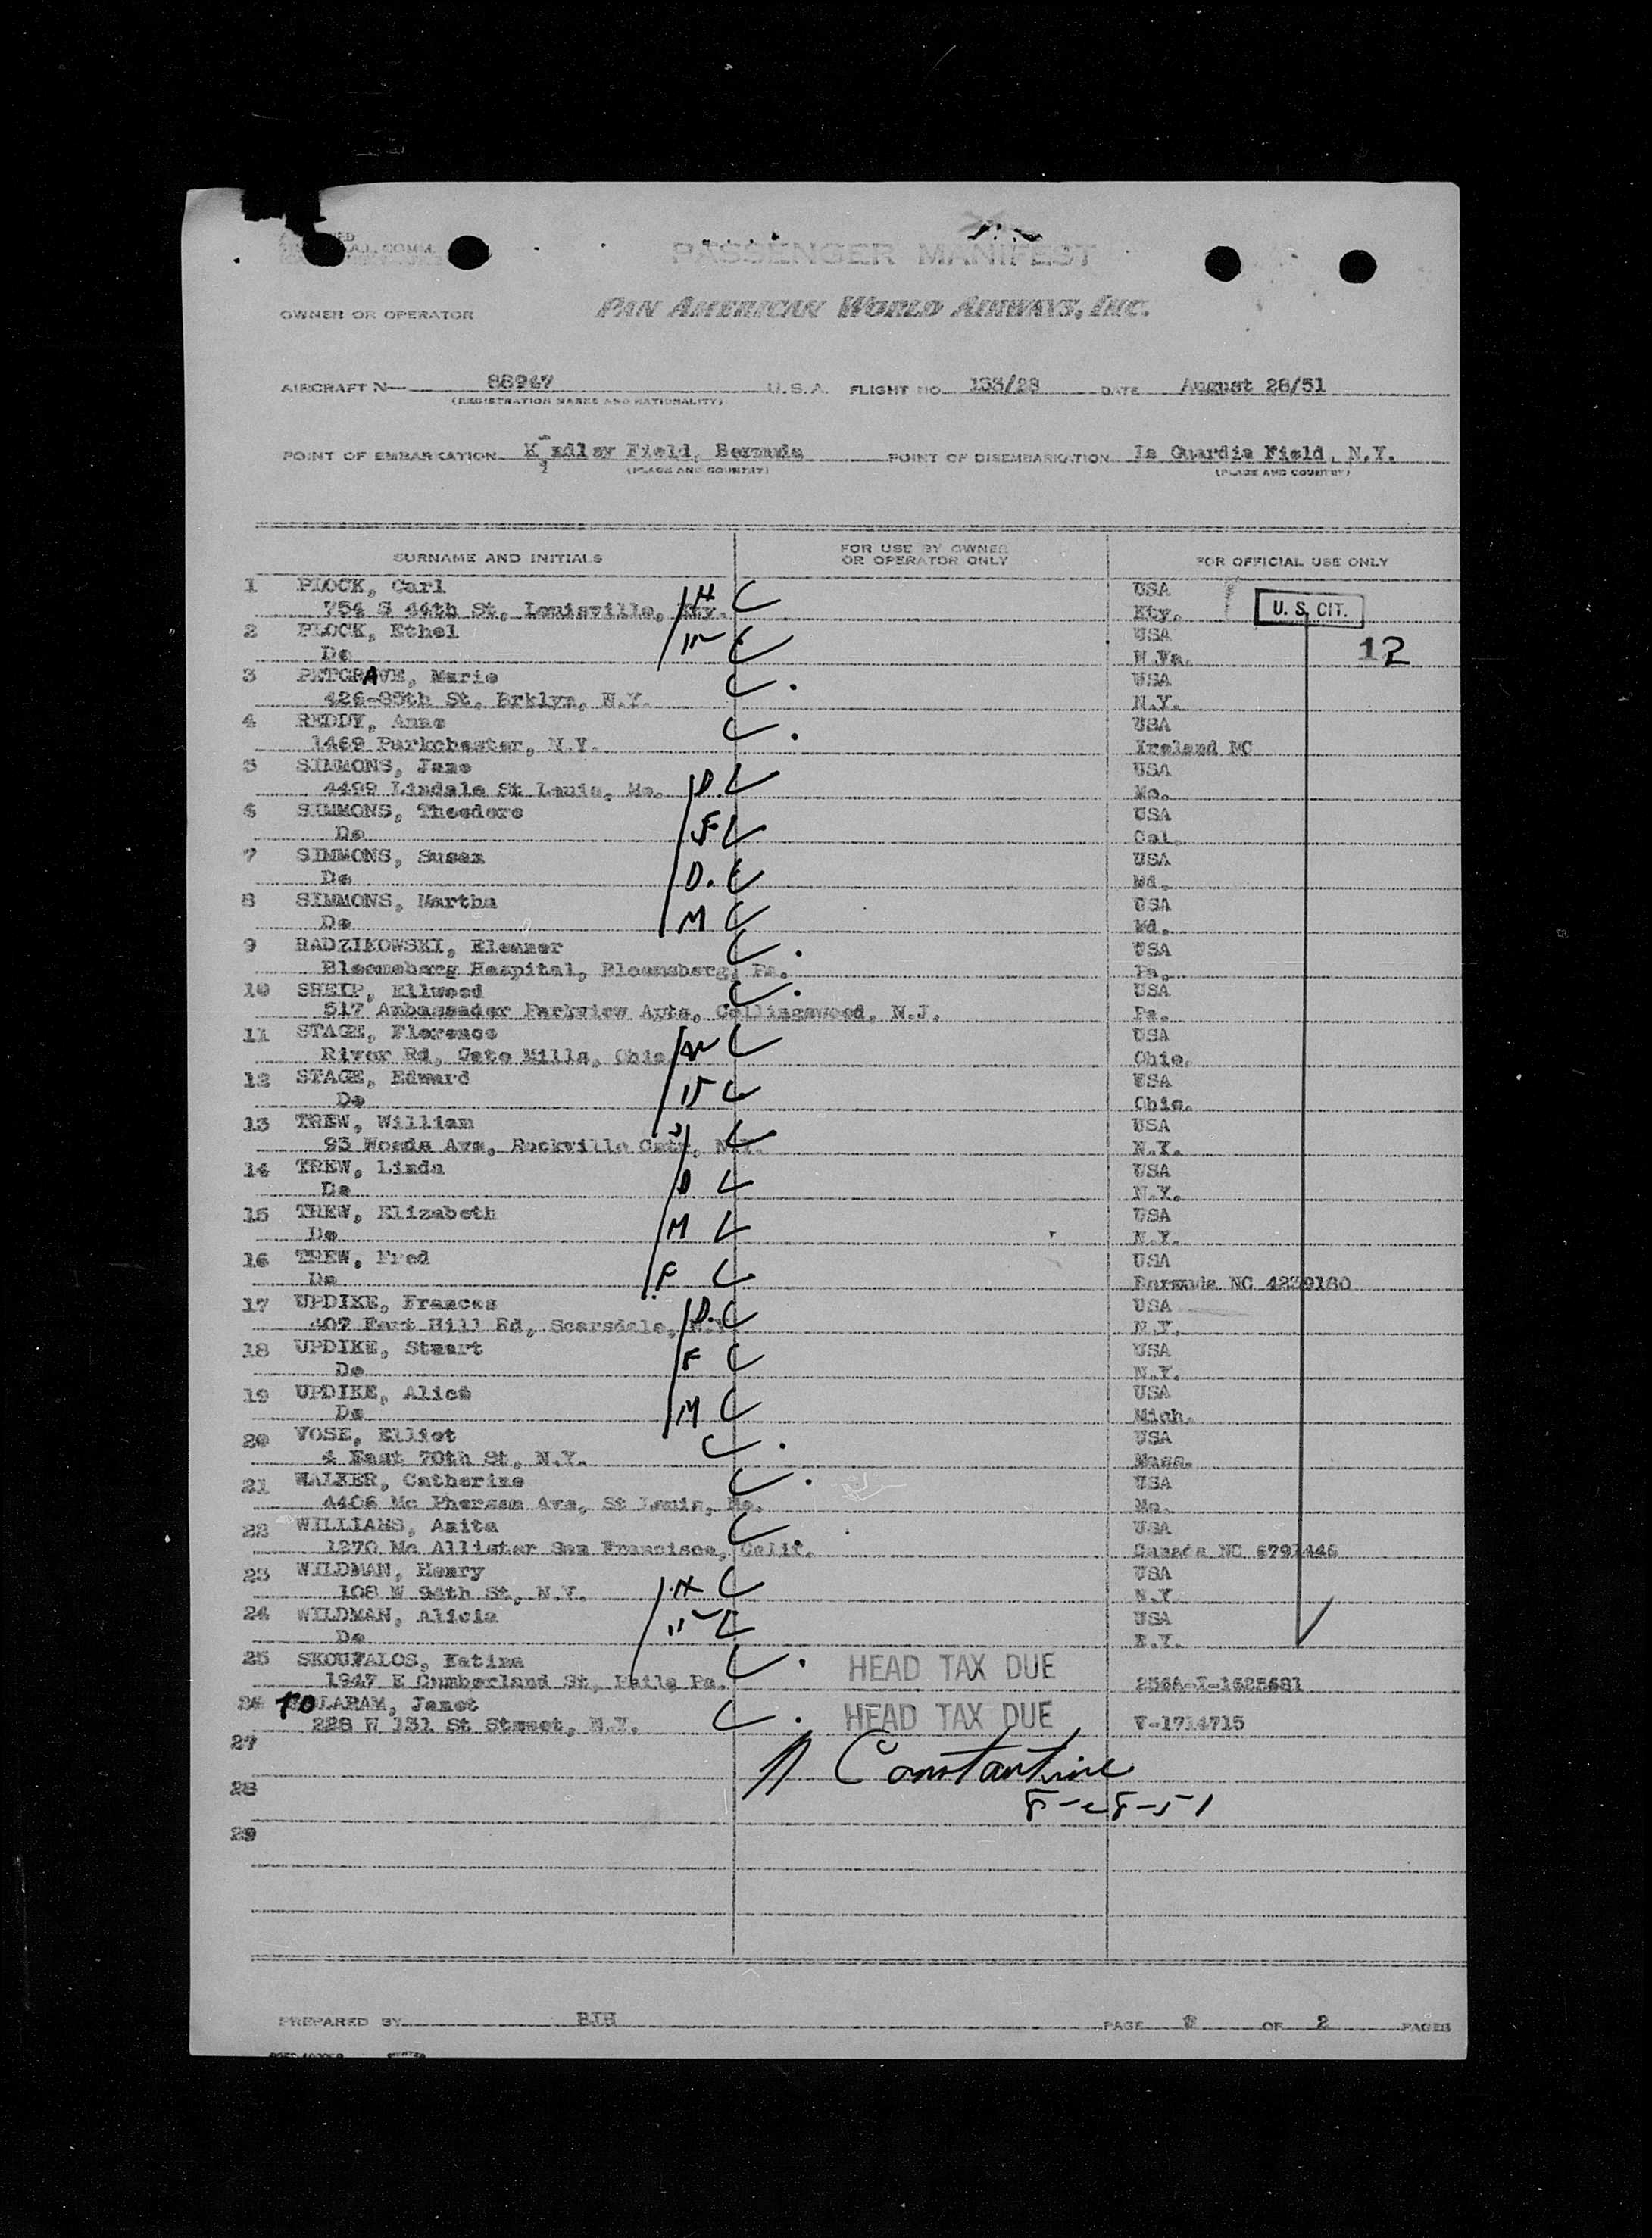 PASSENGER MANIFEST
OWNER OR OPERATOR PAN AMERICAN WORLD AIRWAYS, INC.
AIRCRAFT N— 88947 U.S.A. FLIGHT NO. 133/28 DATE August 28/51
(REGISTRATION MARKS AND NATIONALITY)
POINT OF EMBARKATION Kindley Field, Bermuda POINT OF DISEMBARKATION La Guardia Field, N.Y.
(PLACE AND COUNTRY) (PLACE AND COUNTRY)
SURNAME AND INITIALS FOR USE BY OWNER OR OPERATOR ONLY FOR OFFICIAL USE ONLY
1 PLOCK, Carl USA
754 S 44th St, Louisville, Kty. H C Kty. U. S. CIT.
2 PLOCK, Ethel USA
Do C W.Va. 12
3 PETGRAVE, Marie C USA
426-89th St, Brklyn, N.Y. N.Y.
4 REDDY, Anne C USA
1469 Parkchester, N.Y. Ireland NC
5 SIMMONS, Jane USA
4499 Lindale St Louis, Mo. D. C Mo.
6 SIMMONS, Theodore USA
Do F C Cal.
7 SIMMONS, Susan USA
Do D. C Md.
8 SIMMONS, Martha USA
Do M C Md.
9 RADZIKOWSKI, Eleanor C USA
Bloomsberg Hospital, Bloomsberg, Pa. Pa.
10 SHEIP, Ellwood C USA
517 Ambassador Parkview Apts, Collingswood, N.J. Pa.
11 STAGE, Florence USA
River Rd, Gate Mills, Ohio C Ohio.
12 STAGE, Edward USA
Do C Ohio.
13 TREW, William USA
95 Woods Ave, Rockville Cntr, N.Y. C N.Y.
14 TREW, Linda USA
Do D C N.Y.
15 TREW, Elizabeth USA
Do M C N.Y.
16 TREW, Fred USA
Do F C Bermuda NC 4239180
17 UPDIKE, Frances USA
407 Fort Hill Rd, Scarsdale, N.Y. D. C N.Y.
18 UPDIKE, Stuart USA
Do F C N.Y.
19 UPDIKE, Alice USA
Do M C Mich.
20 VOSE, Elliot C USA
4 East 70th St, N.Y. Mass.
21 WALKER, Catherine C USA
4406 Mc Pherson Ave, St Louis, Mo. Mo.
22 WILLIAMS, Anita C USA
1270 Mc Allister San Francisco, Calif. Canada NC 6791446
23 WILDMAN, Henry USA
108 W 94th St, N.Y. H C N.Y.
24 WILDMAN, Alicia USA
Do C N.Y.
25 SKOUFALOS, Katina C HEAD TAX DUE
1947 E Cumberland St, Phila Pa. 256A-I-1628681
26 TOLARAM, Janet C HEAD TAX DUE
228 W 131 St Street, N.Y. V-1714715
27
Constantine
28
8-28-51
29
PREPARED BY BJH PAGE 2 OF 2 PAGES